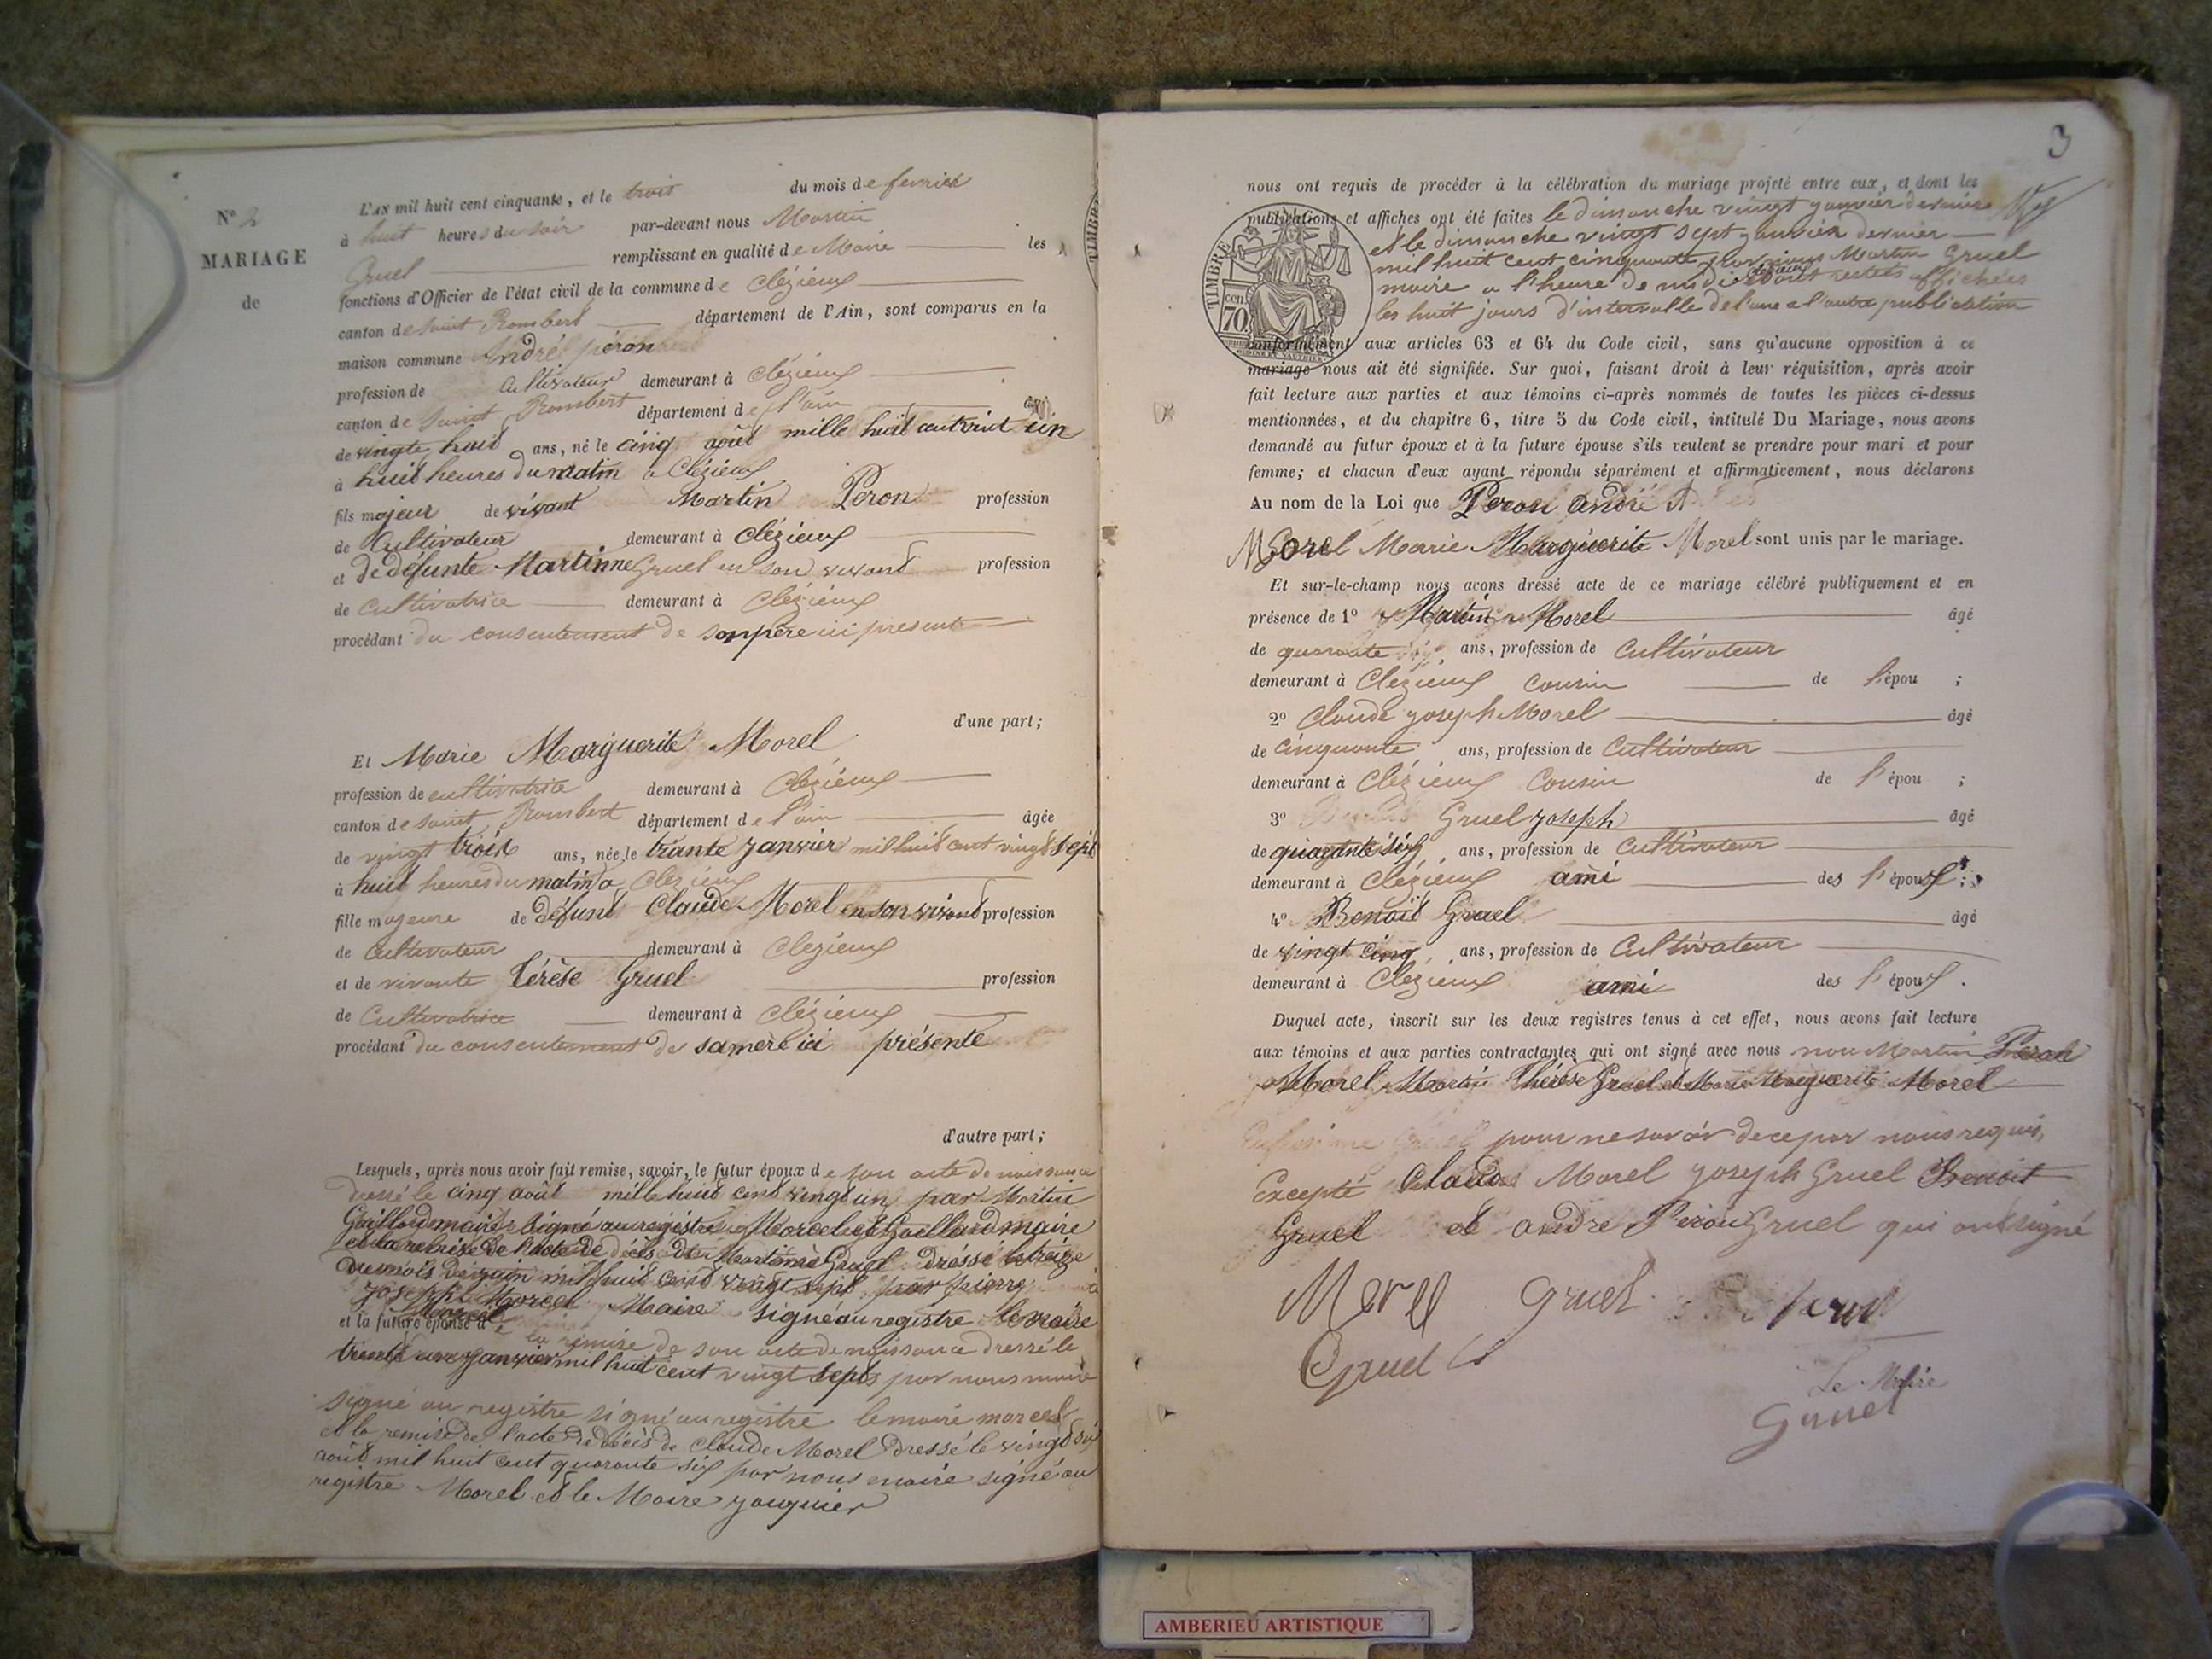 N° 2
MARIAGE
de
L'AN mil huit cent cinquante, et le trois du mois de fevrier
à huit heures du soir par-devant nous Martin
Gruel remplissant en qualité de Maire les
fonctions d'Officier de l'état civil de la commune de Clézieux
canton de saint Rombert département de l'Ain, sont comparus en la
maison commune André peron
profession de Cultivateur demeurant à Clézieux
canton de saint Rombert département de l'ain
de vingte huit ans, né le cinq août mille huit cent vint un
à huit heures du matin a Clézieux
fils majeur de vivant Martin Peron profession
de Cultivateur demeurant à clézieux
et de défunte Martinne Gruel en son vivant profession
de Cultivatrice demeurant à Clézieux
procédant du consentement de son père ici present
d'une part;
Et Marie Marguerite Morel
profession de cultivatrice demeurant à Clezieux
canton de saint Rombert département de l'ain âgée
de vingt trois ans, née le trante janvier mil huit cent vingt sept
à huit heures du matin a Clezieux
fille majeure de défunt Claude Morel en son vivant profession
de Cultivateur demeurant à Clezieux
et de vivante Térèse Gruel profession
de Cultivatrice demeurant à Clézieux
procédant du consentement de sa mère ici présente
d'autre part;
Lesquels, après nous avoir fait remise, savoir, le futur époux de son acte de naissance
dressé le cinq août mille huit cent vingt un par Martin
Gaillard maire signé au registre Marcel et Gaillard maire
et la remise de l'acte de décès de Martinne Gruel dréssé le treize
du mois de juin mil huit cent vingt sept par pierre
Joseph Marcel Maire signé au registre le maire
Marcel
et la future épouse de la remise de son acte de naissance dressé le
trente un janvier mil huit cent vingt sept par nous maire
signé au registre signé au registre le maire marcel
et la remise de l'acte de décès de Claude Morel dressé le vingt six
août mil huit cent quarante six par nous maire signé au
registre Morel et le Maire janquier
3
nous ont requis de procéder à la célébration du mariage projeté entre eux, et dont les
publications et affiches ont été faites le dimanche vingt janvier dernier
et le dimanche vingt sept janvier dernier
mil huit cent cinquante par nous Martin Gruel
maire a l'heure de midi et sont restées affichées
les huit jours d'intervalle de l'une a l'autre publication
TIMBRE
70 cen
conformément aux articles 63 et 64 du Code civil, sans qu'aucune opposition à ce
mariage nous ait été signifiée. Sur quoi, faisant droit à leur réquisition, après avoir
fait lecture aux parties et aux témoins ci-après nommés de toutes les pièces ci-dessus
mentionnées, et du chapitre 6, titre 5 du Code civil, intitulé Du Mariage, nous avons
demandé au futur époux et à la future épouse s'ils veulent se prendre pour mari et pour
femme; et chacun d'eux ayant répondu séparément et affirmativement, nous déclarons
Au nom de la Loi que Peron andré
Morel Marie Marguerite Morel sont unis par le mariage.
Et sur-le-champ nous avons dressé acte de ce mariage célébré publiquement et en
présence de 1° Martin Morel âgé
de quarante six ans, profession de Cultivateur
demeurant à Clezieux cousin de l'épou ;
2° Claude joseph Morel âgé
de Cinquante ans, profession de Cultivateur
demeurant à Clézieux Cousin de l'épou ;
3° Gruel joseph âgé
de quarante six ans, profession de Cultivateur
demeurant à Clezieux ami des l'époux ;
4° Benoit Gruel âgé
de vingt cinq ans, profession de Cultivateur
demeurant à Clezieux ami des l'époux .
Duquel acte, inscrit sur les deux registres tenus à cet effet, nous avons fait lecture
aux témoins et aux parties contractantes qui ont signé avec nous non Martin Peron
Morel Martin Thérèse Gruel et Marie Marguerite Morel
pour ne savoir de ce par nous requis,
Excepté Claude Morel joseph Gruel Benoit
Gruel et andre Peron Gruel qui ont signé
Morel Gruel peron
Gruel
Le Maire
Gruel
AMBERIEU ARTISTIQUE